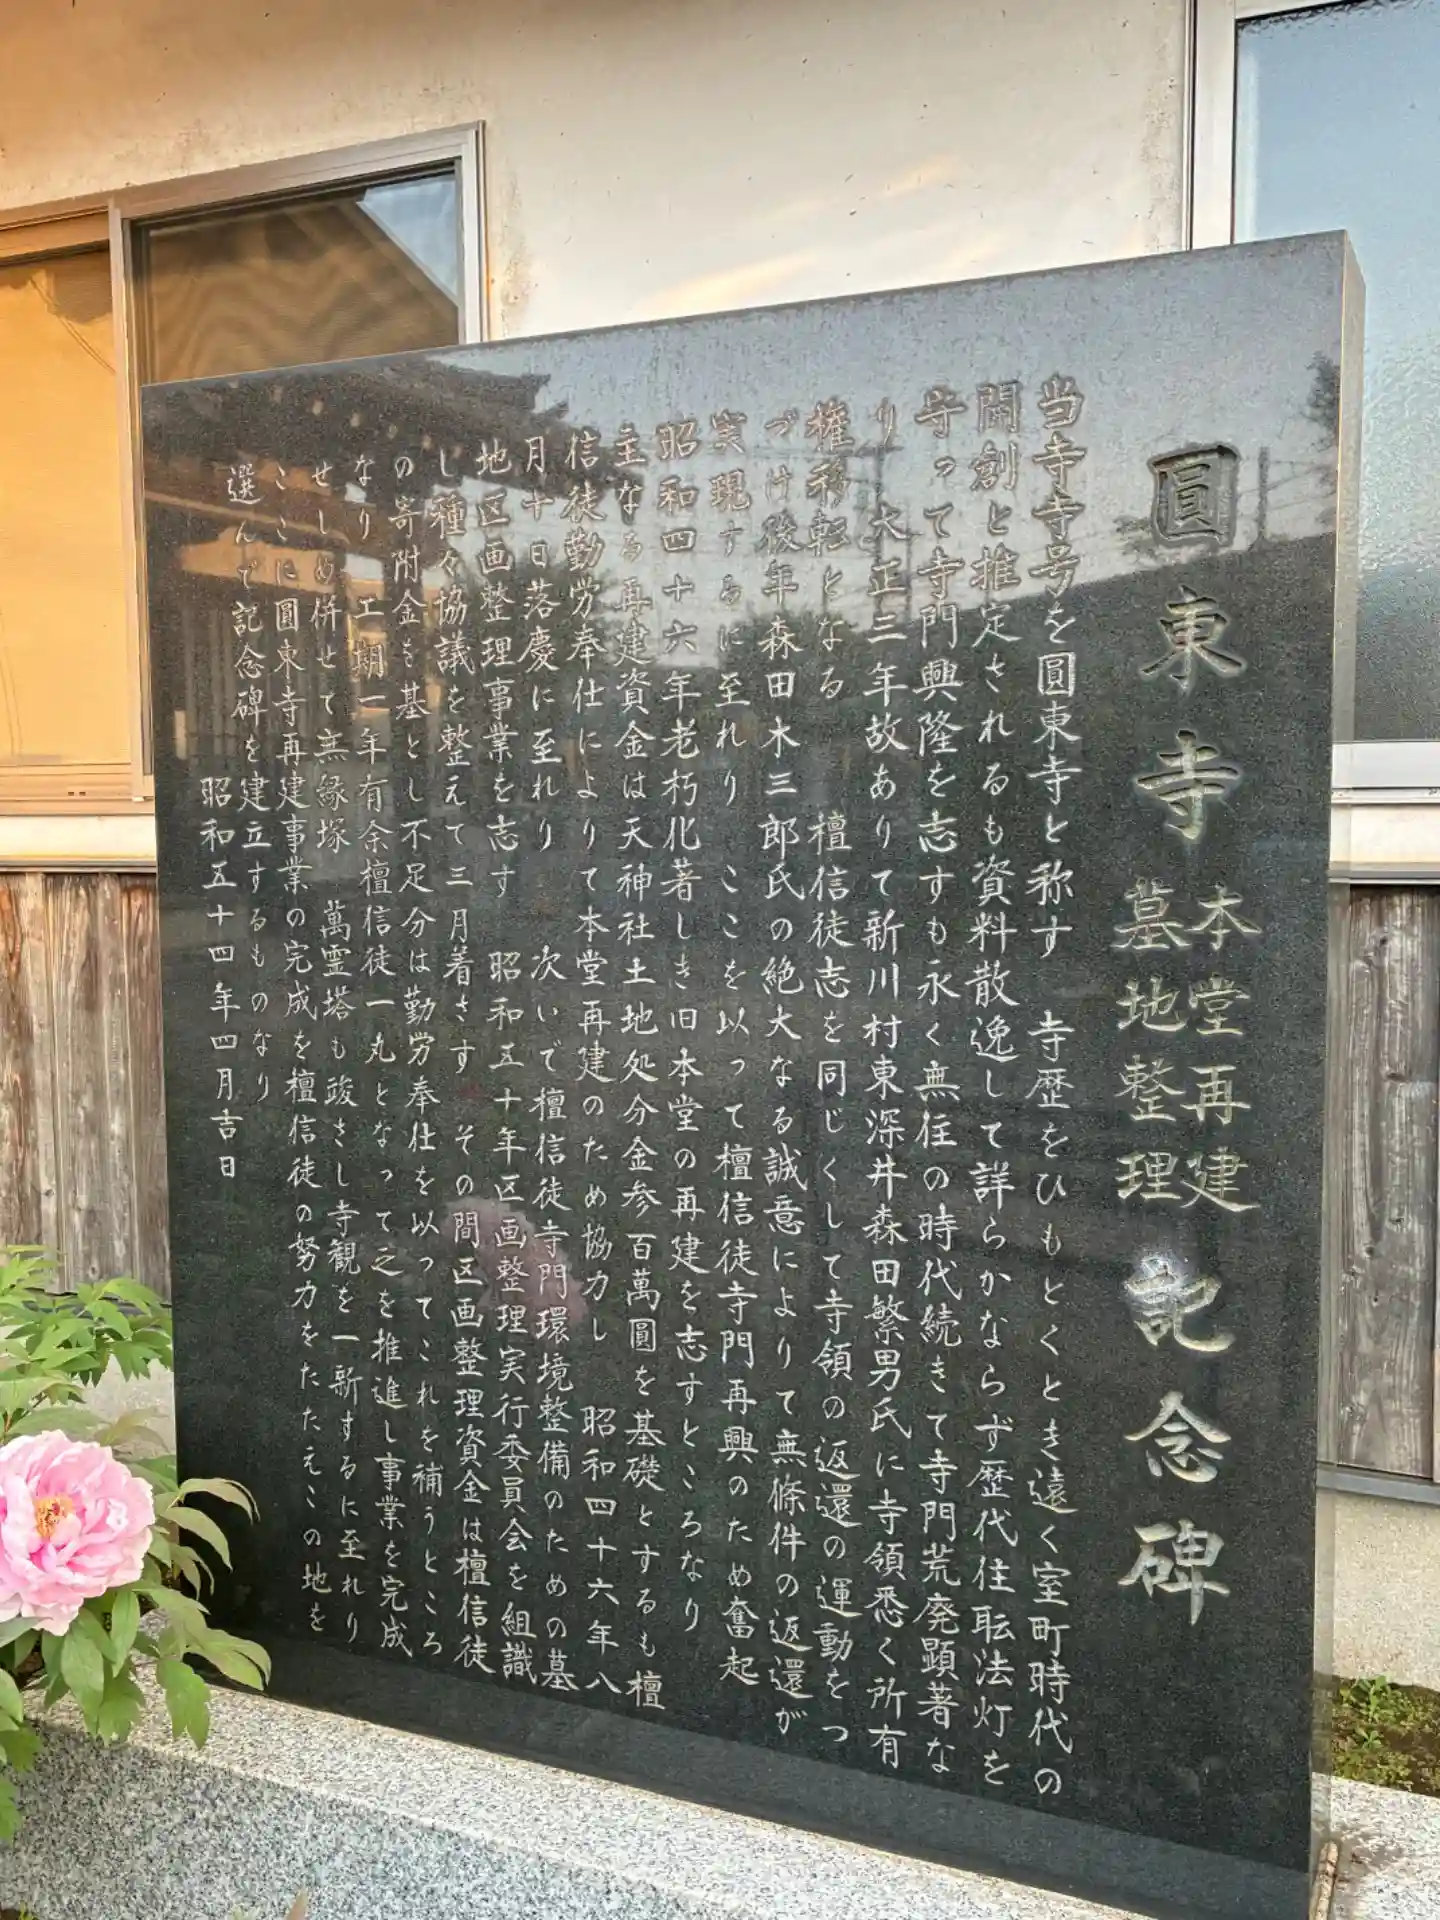 圓東寺 本堂再建 墓地整理 記念碑
当寺寺号を圓東寺と称す 寺歴をひもとくとき遠く室町時代の
開創と推定されるも資料散逸して詳らかならず歴代住職法灯を
守って寺門興隆を志すも永く無住の時代続きて寺門荒廃顕著な
り 大正三年故ありて新川村東深井森田繁男氏に寺領悉く所有
権移転となる 檀信徒志を同じくして寺領の返還の運動をつ
づけ後年森田木三郎氏の絶大なる誠意によりて無條件の返還が
実現するに至れり ここを以って檀信徒寺門再興のため奮起
昭和四十六年老朽化著しき旧本堂の再建を志すところなり
主なる再建資金は天神社土地処分金参百萬圓を基礎とするも檀
信徒勤労奉仕によりて本堂再建のため協力し 昭和四十六年八
月十日落慶に至れり 次いで檀信徒寺門環境整備のための墓
地区画整理事業を志す 昭和五十年区画整理実行委員会を組識
し種々協議を整えて三月着さす その間区画整理資金は檀信徒
の寄附金を基とし不足分は勤労奉仕を以ってこれを補うところ
なり 工期一年有余檀信徒一丸となって之を推進し事業を完成
せしめ併せて無縁塚 萬霊塔も竣さし寺観を一新するに至れり
ここに圓東寺再建事業の完成を檀信徒の努力をたたえこの地を
選んで記念碑を建立するものなり
昭和五十四年四月吉日